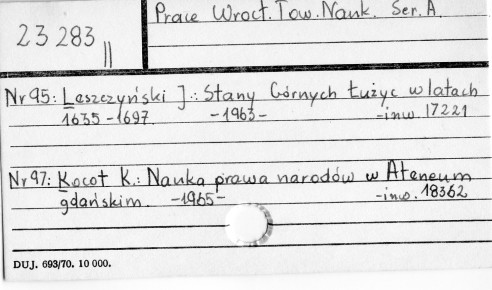 Prace Wrocł. Tow. Nauk. Ser. A.
23 283 ||
Nr 95: Leszczyński J.: Stany Górnych Łużyc w latach
1635-1697. -1963- -inw. 17221
Nr 97: Kocot K.: Nauka prawa narodów w Ateneum
gdańskim. -1965- -inw. 18362
DUJ. 693/70. 10 000.